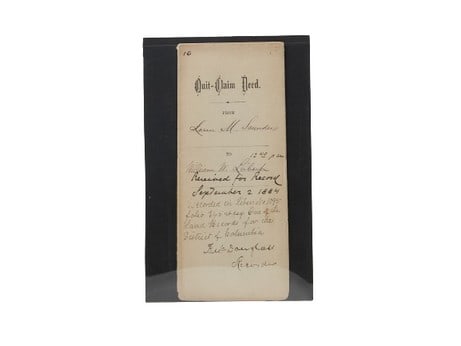 16
Quit-Claim Deed.
FROM
M. Saunders
TO
William W.
Received for Record
September 2 1884
Recorded in Liber No
one of the
Land Records for the
District of Columbia
Fred Douglass
Recorder